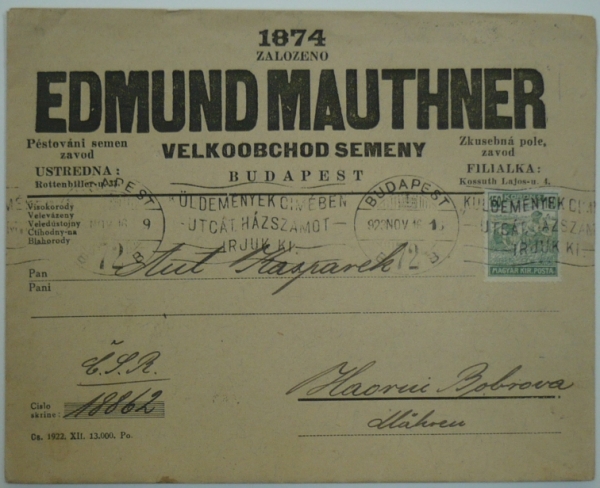 1874
ZALOZENO
EDMUND MAUTHNER
Pěstování semen
zavod
USTREDNA:
Rottenbiller-u. 33.
VELKOOBCHOD SEMENY
BUDAPEST
Zkusebná pole,
zavod
FILIALKA:
Kossuth Lajos-u. 4.
Visokorody
Velevázeny
Veledůstojny
Ctihodny-na
Blahorody
9
KÜLDEMÉNYEK CIMÉBEN
UTCÁT, HÁZSZÁMOT
IRJUK KI.
BUDAPEST
922 NOV
12
B
KÜLDEMÉNYEK CI
UTCÁT HÁZSZ
IRJUK KI.
MAGYAR KIR. POSTA
Pan Ant Kasparek
Pani
Č.S.R.
Cislo
skrine: 18862
Haorni Bobrova
Mähren
Dz. 1922. XII. 13.000. Po.